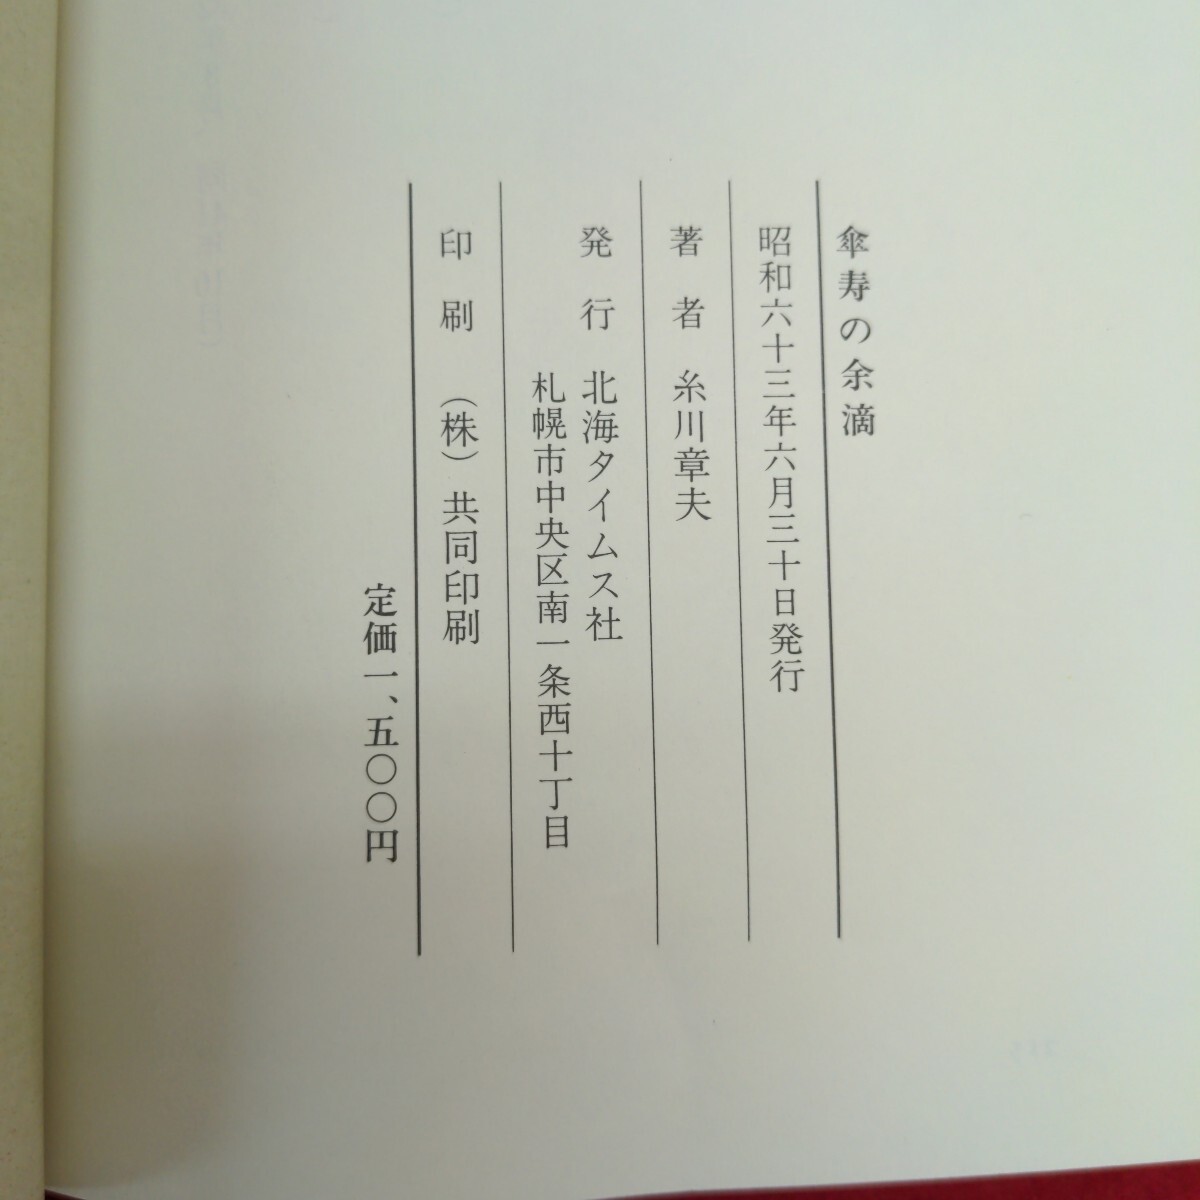 傘寿の余滴
昭和六十三年六月三十日発行
著者 糸川章夫
発行 北海タイムス社
札幌市中央区南一条西十丁目
印刷 (株)共同印刷
定価一、五〇〇円